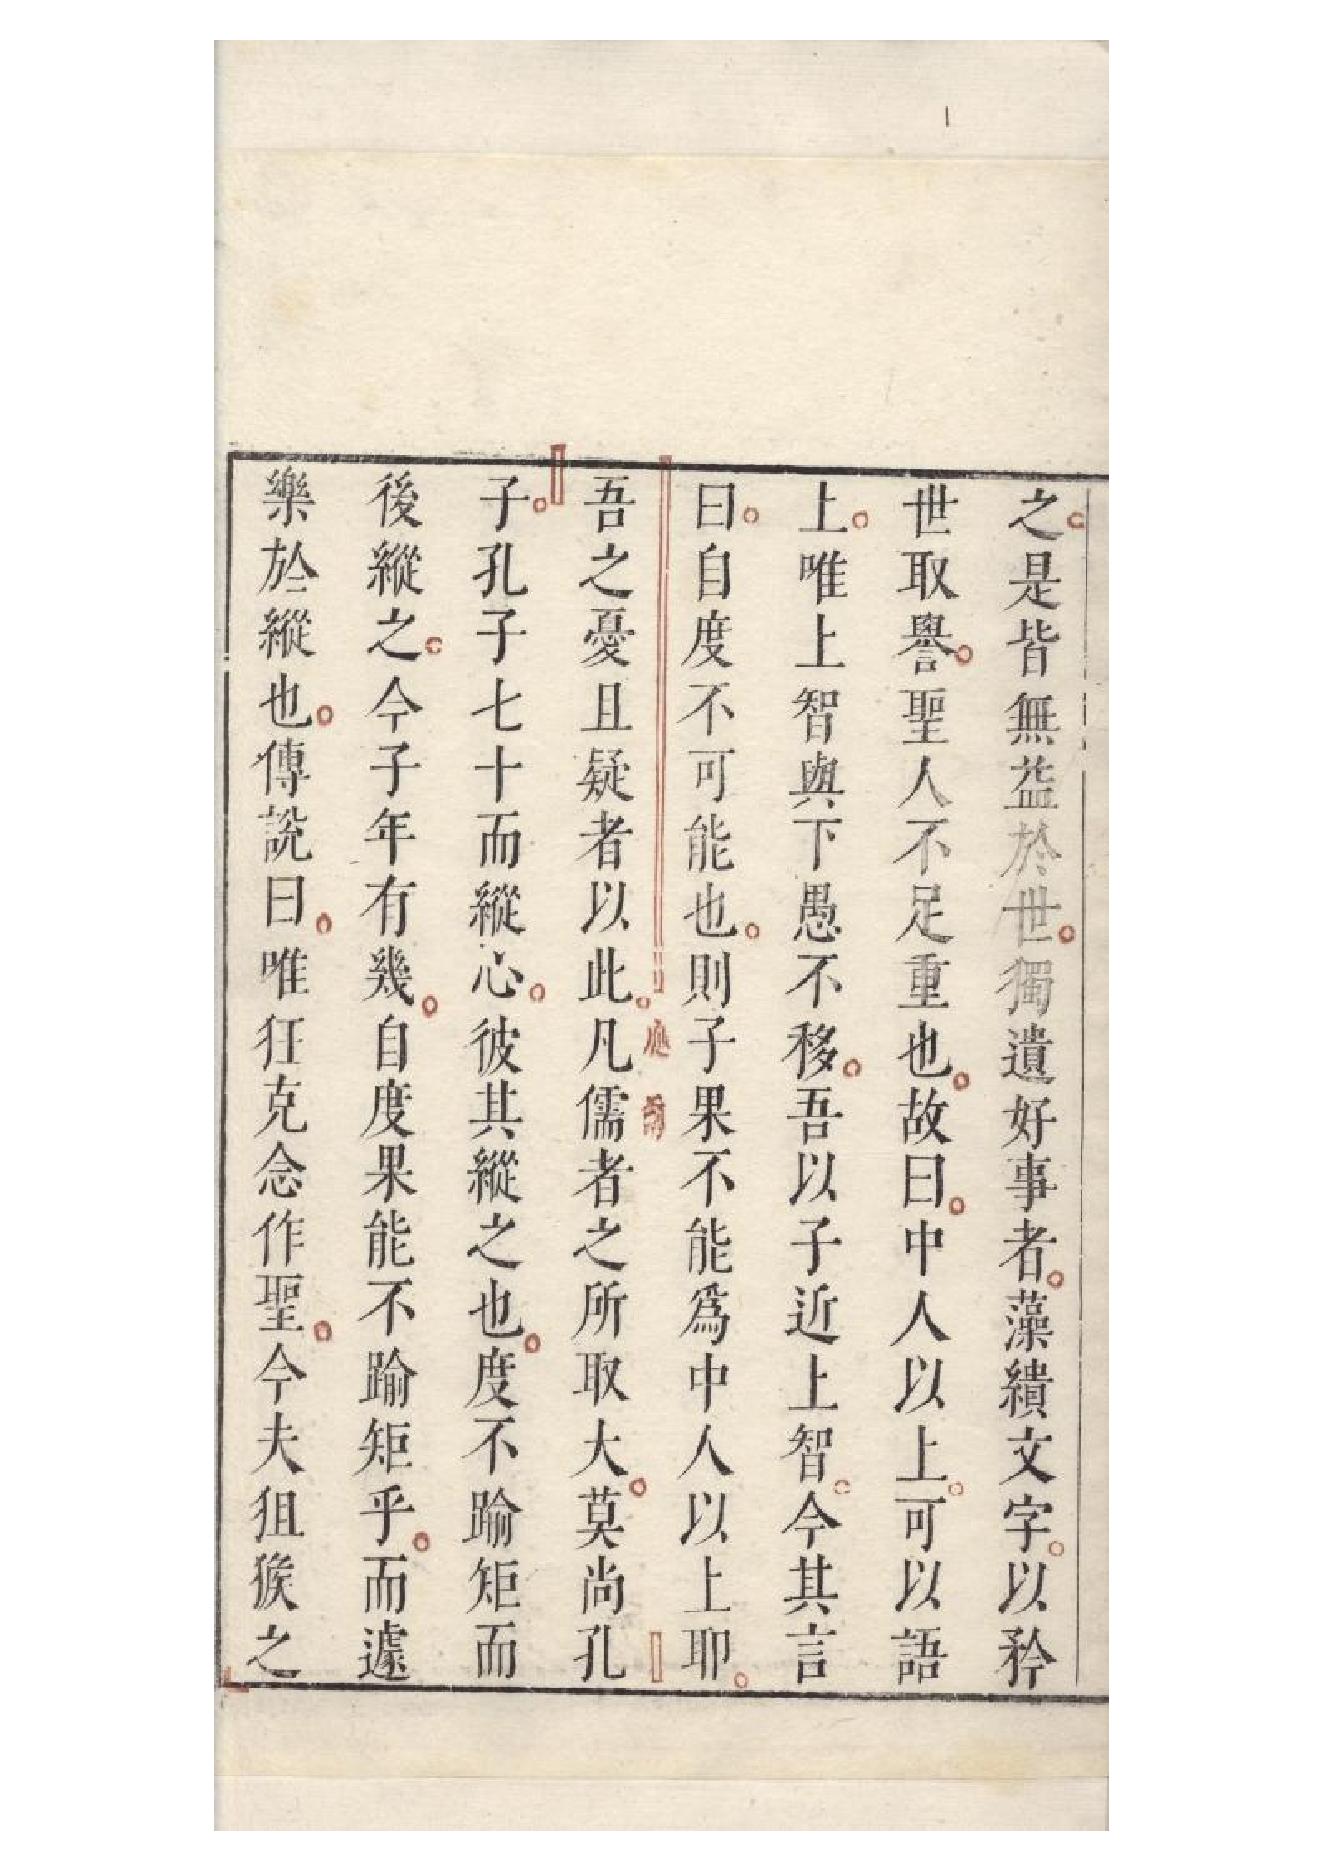 之是皆無益於世獨遺好事者藻繢文字以矜
世取譽聖人不足重也故曰中人以上可以語
上唯上智與下愚不移吾以子近上智今其言
曰自度不可能也則子果不能爲中人以上耶
吾之憂且疑者以此凡儒者之所取大莫尚孔
子孔子七十而縱心彼其縱之也度不踰矩而
後縱之今子年有幾自度果能不踰矩乎而遽
樂於縱也傳說曰唯狂克念作聖今夫狙猴之